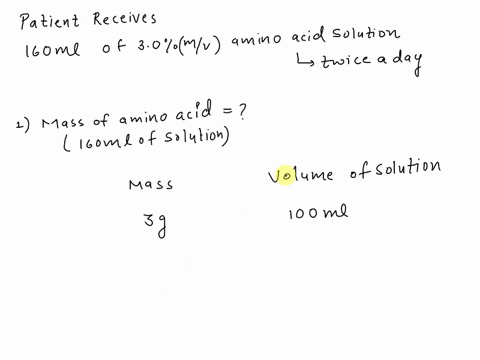 Patient Receives
160ml of 3.0%(m/v) amino acid solution
↳ twice a day
1) Mass of amino acid = ?
(160ml of solution)
Mass Volume of solution
3g 100ml